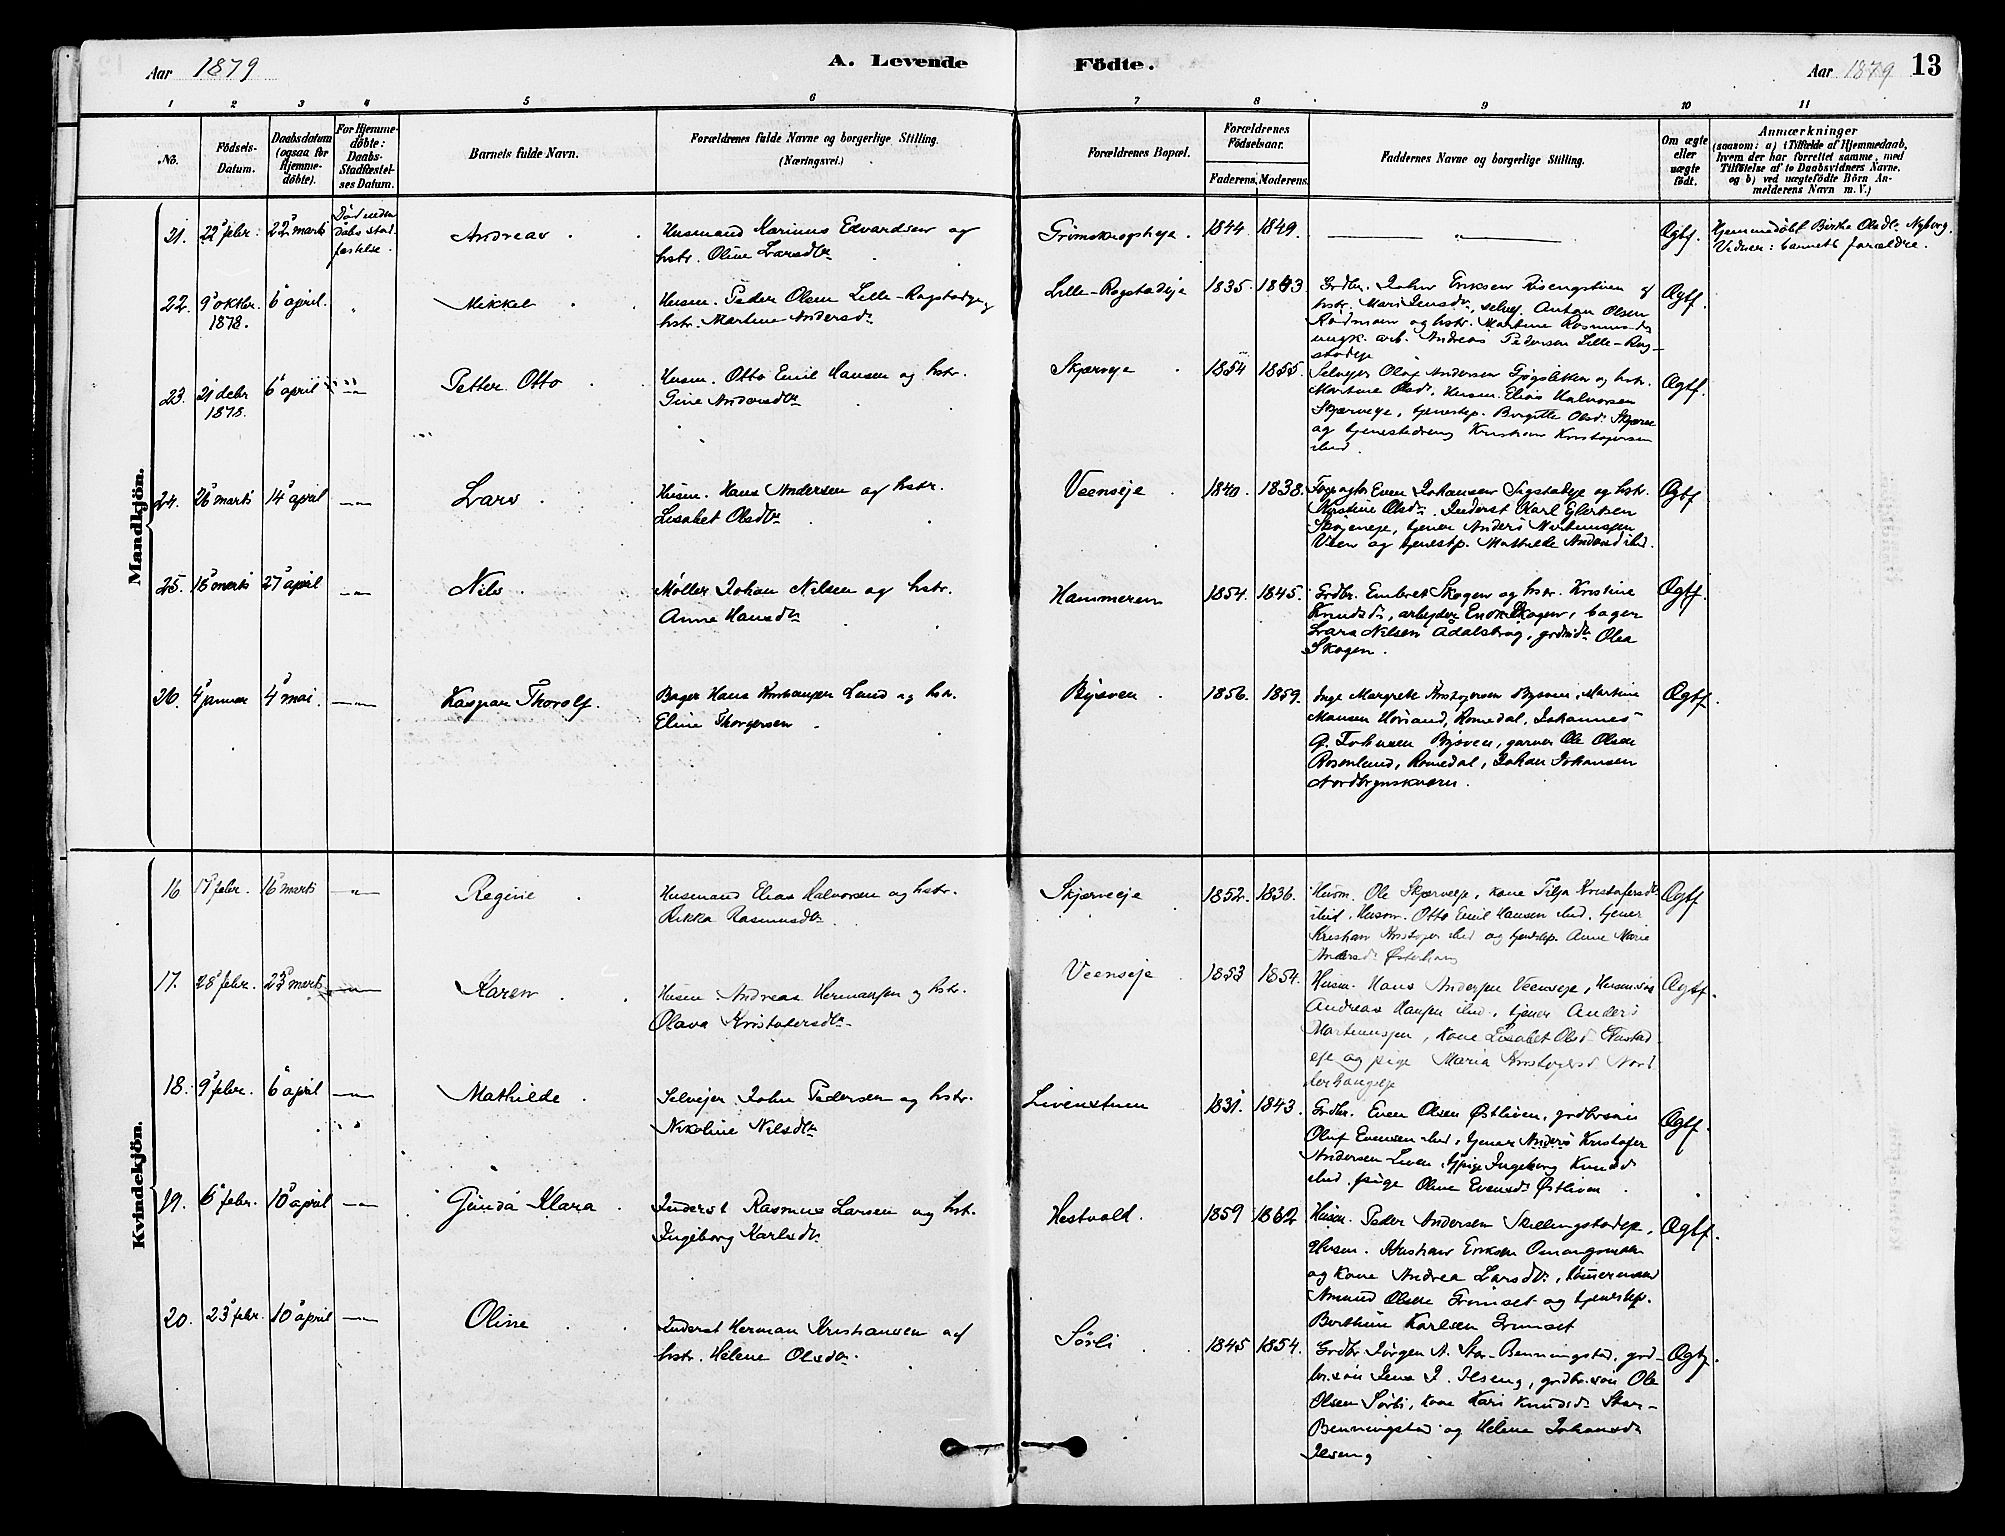 Aar 1879
A. Levende Födte.
Aar 1879 13
1 2 3 4 5 6 7 8 9 10 11
No.
Födsels-Datum.
Daabsdatum (ogsaa for Hjemmedöbte).
For Hjemmedöbte: Daabs-Stadfæstelses Datum.
Barnets fulde Navn.
Forældrenes fulde Navne og borgerlige Stilling. (Næringsvei.)
Forældrenes Bopæl.
Forældrenes Födselsaar.
Faderens. Moderens.
Faddernes Navne og borgerlige Stilling.
Om ægte eller uægte födt.
Anmærkninger
(saasom: a) i Tilfælde af Hjemmedaab, hvem der har forrettet samme, med Tilföielse af to Daabsvidners Navne. og b) ved uægtefödte Börn Anmelderens Navn m. V.)
Mandkjön.
21. 22 febr. 22 marts Död uden dåbs stadfestelse. Andreas Husmand Marinus Edvardsen og
hstr. Oline Larsdtr
Grimskrogsheje 1844 1849. — " — Ægtf. Hjemmedöbt Birthe Olsdtr Nyborg.
Vidner: barnets forældre.
22. 9 oktbr. 1878. 6 april. " Mikkel Husm. Peder Olsen Lille-Rogstadeje og
hstr. Martine Andersdtr
Lille-Rogstadeje 1835 1843 Grdbr. Johan Eriksen
hstr. Mari Jensdtr, selvej. Anton Olsen
og hstr. Martine Rasmusdtr
ungk. arb. Andreas Pedersen Lille-Rog-
stadeje
Ægtf.
23. 21 debr 1878. 6 april — " — Petter Otto Husm. Otto Emil Hansen og hstr.
Gine Andersdtr
Skjærveje 1854 1855. Selvejer Oluf Andersen og hstr.
Martine Olsdtr. Husm. Elias Halvorsen
Skjærveje, tjenestep. Birgitte Olsdtr Skjærve
og tjenestedreng Kristian Kristofersen
ibid.
Ægtf.
24. 26 marts 14 april — " — Lars Husm. Hans Andersen og hstr.
Lisabet Olsdtr
Veenseje 1840. 1838. Even Johansen og hstr.
Kristine Olsdtr. Inderst Karl Eilertsen
tjener Anders Martinussen
Veen og tjenestp. Mathilde Andersd ibid.
Ægtf.
25. 16 marts 27 april — " — Nils Møller Johan Nilsen og hstr.
Anne Hansdtr
Hammeren 1854. 1845. Grdbr. Embret Skogen og hstr. Kristine
Knudsdtr, arbejder Enok Skogen, bager
Lars Nilsen Adalsbrug, grdmdtr Olea
Skogen.
Ægtf.
26. 4 januar 4 mai. — " — Kaspar Thorolf. Bager Hans Kristiansen Lund og hstr.
Eline Thorgersen
Bysven 1856. 1859. Inge Margrete Kristofersen Bysven, Martine
Hansen Romedal, Johannes
G. Johnsen Bysven, garver Ole Olsen
Rosenlund, Romedal, Johan Johansen
Ægtf.
Kvindekjön.
16 17 febr. 16 marts — " — Regine Husmand Elias Halvorsen og hstr.
Rikka Rasmusdtr
Skjærveje 1852. 1836. Husm. Ole Skjærveje, kone Kristofersdtr
ibid, Husm. Otto Emil Hansen ibid, tjener
Kristian Kristofer ibid og tjenestep. Anne Marie
Andersd Østerhaug
Ægtf
17. 28 febr. 23 marts — " — Karen Husm Andreas Hermansen og hstr.
Olava Kristofersdtr
Veenseje 1853 1854. Husm. Hans Andersen Veenseje, Husm.søn
Andreas Hansen ibid, tjener Anders
Martinussen, kone Lisabet Olsd
eje og pige Maria Kristofersd Nord
lerhaugeje
Ægtf.
18. 9 febr. 6 april — " — Mathilde Selvejer John Pedersen og hstr.
Nikoline Nilsdtr
Livenstuen 1831. 1843. Grdbr. Even Olsen Østliven, grdbrsøn
Oluf Evensen ibid, tjener Anders Kristofer
Andersen Liven, tj.pige Ingeborg Knudsd
ibid. pige Oline Evensdtr Østliven
Ægtf.
19. 6 febr. 10 april — " — Gunda Klara Inderst Rasmus Larsen og hst.
Ingeborg Karlsdtr
Hestvold. 1859 1862 Husm. Peder Andersen Skillingstadeje,
Husm. Kristian Eriksen
og kone Andrea Larsdtr, tømmermand
Amund Olsen Grimset og tjenestep.
Berthine Karlsen Grimset
Ægtf.
20. 23 febr. 10 april — " — Oline Inderst Herman Kristiansen og
hstr. Helene Olsdtr.
Sørli 1845 1854. Grdbr Jörgen A. Stor-Benningstad, grd-
br.søn Jens J. Ilseng, grdbr.søn Ole
Olsen Sørli, kone Kari Knudsdtr Stor-
Benningstad og Helene Johansdtr
Ilseng
Ægtf.